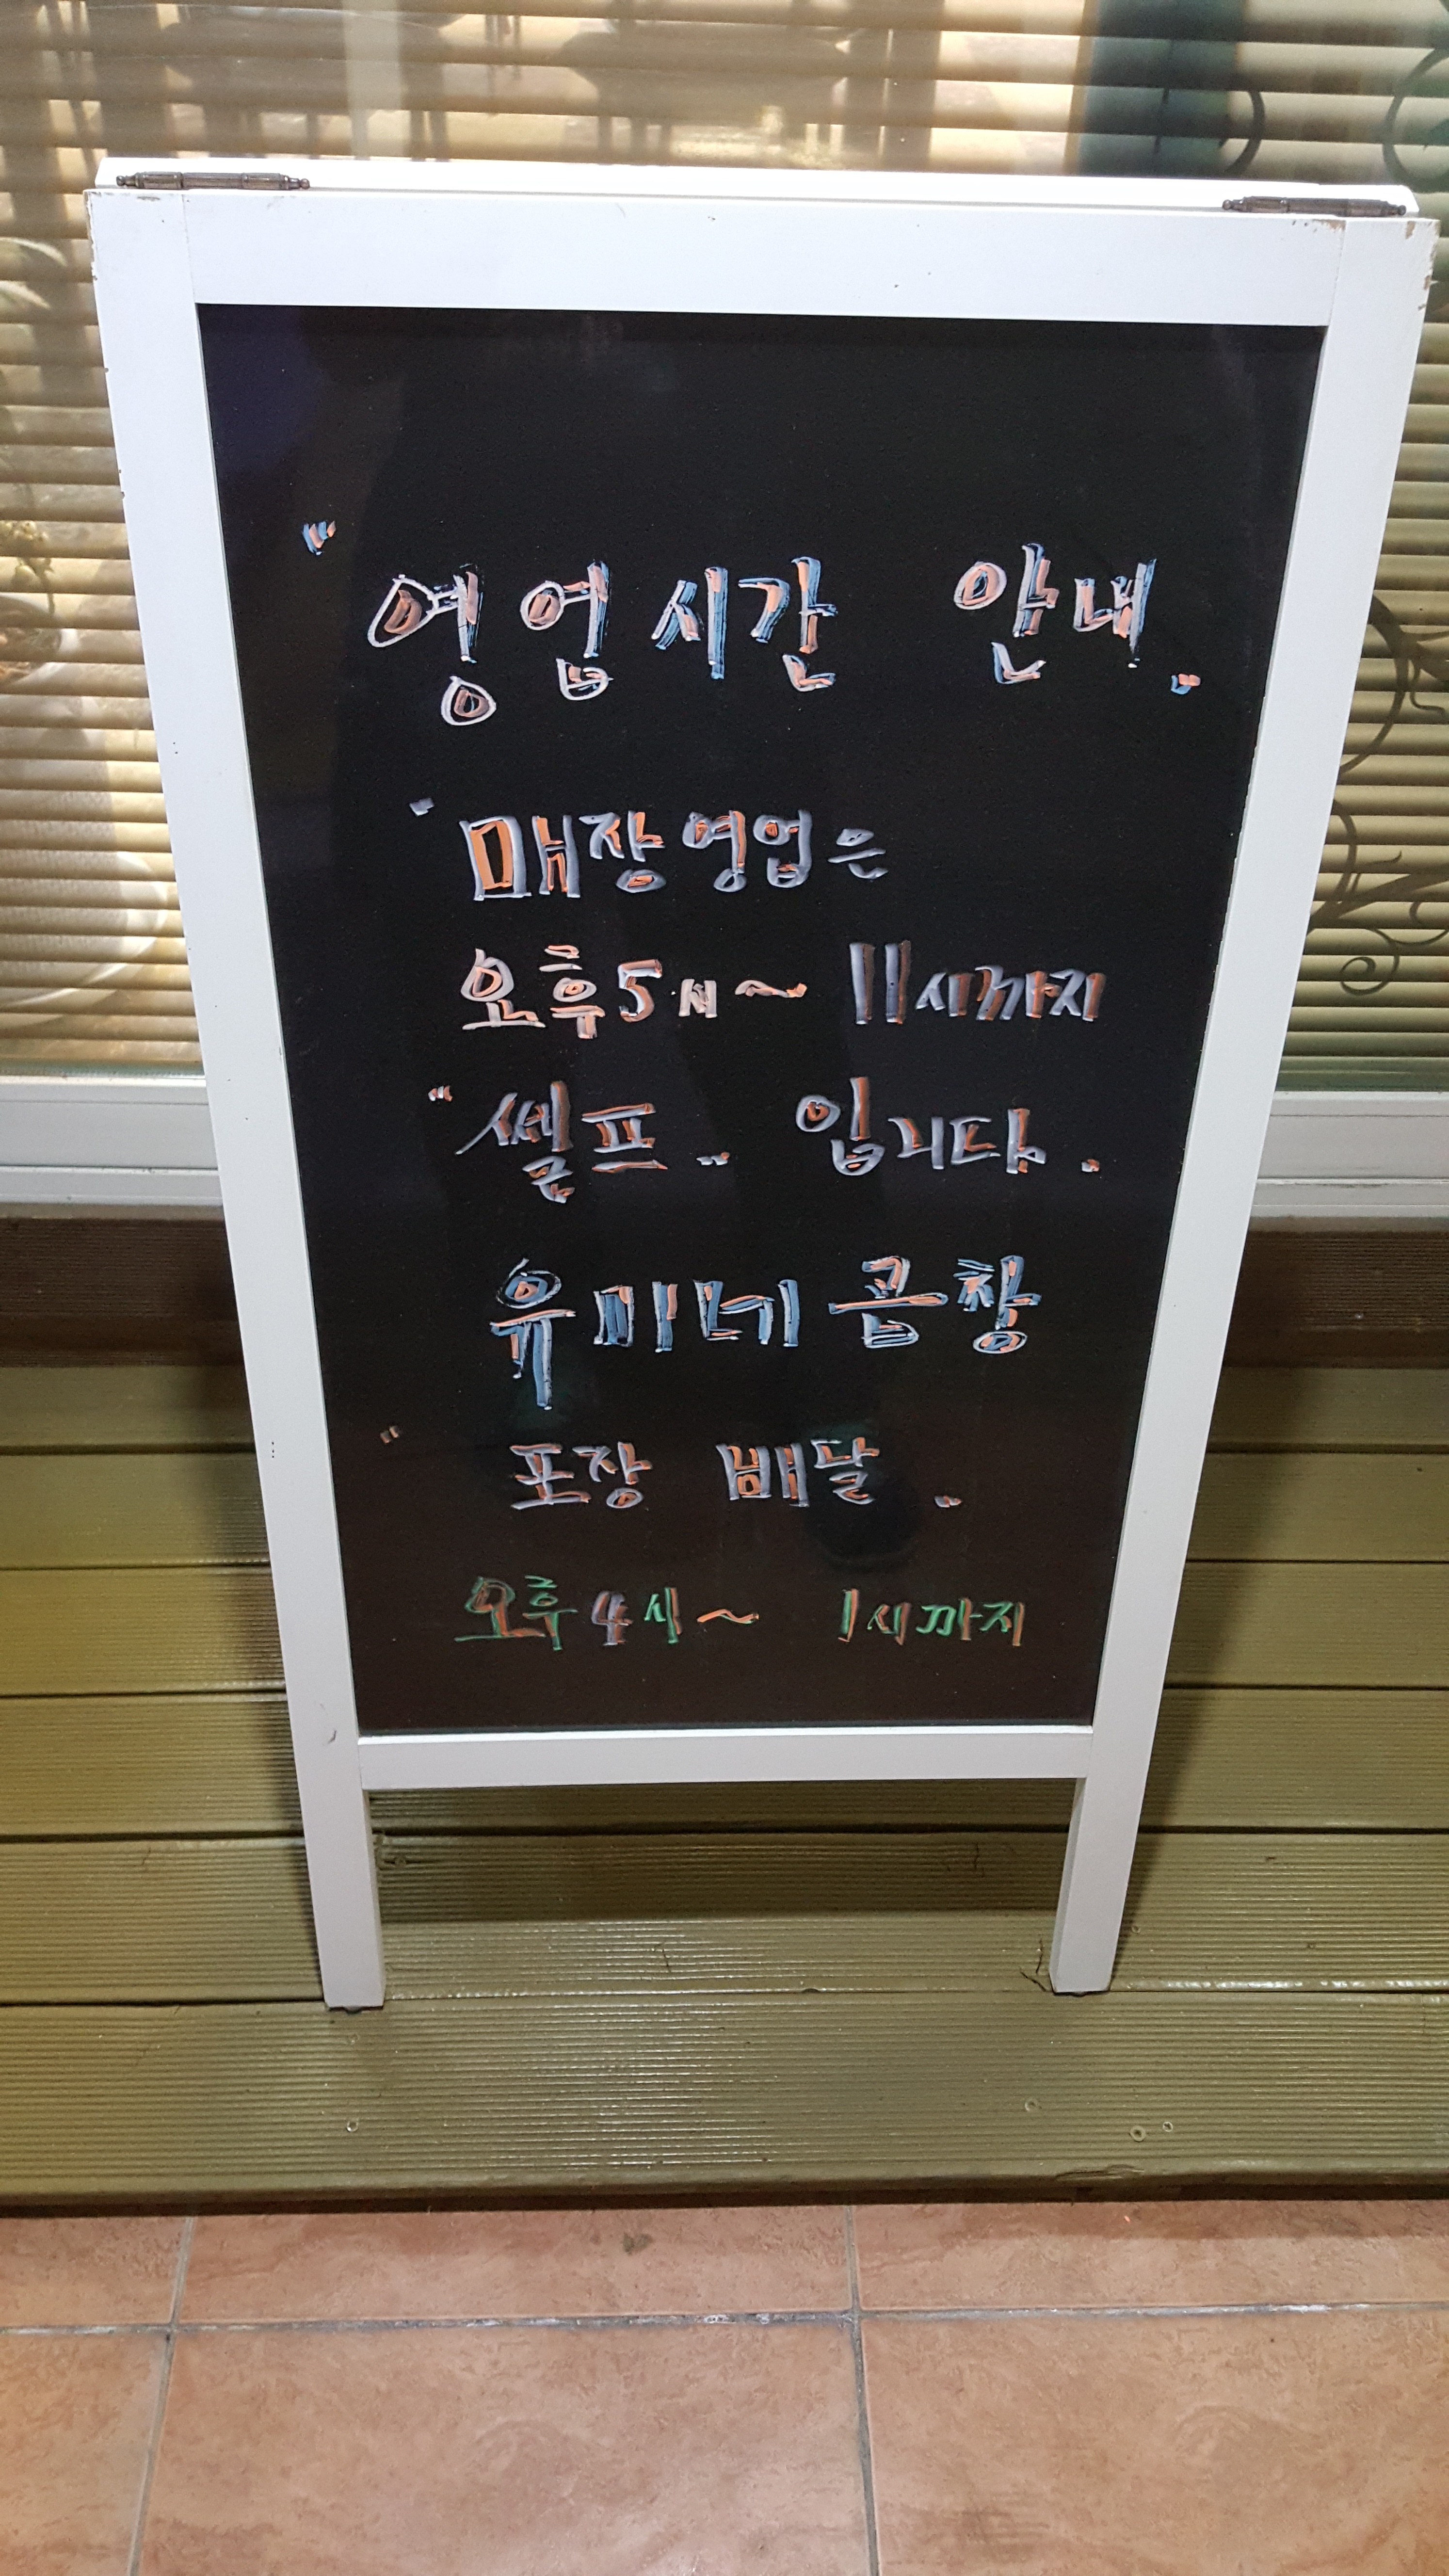 "영업시간 안내"
"매장영업은
오후5시~ 11시까지
"쎌프" 입니다."
유미네곱창
"포장 배달"
오후4시~ 1시까지